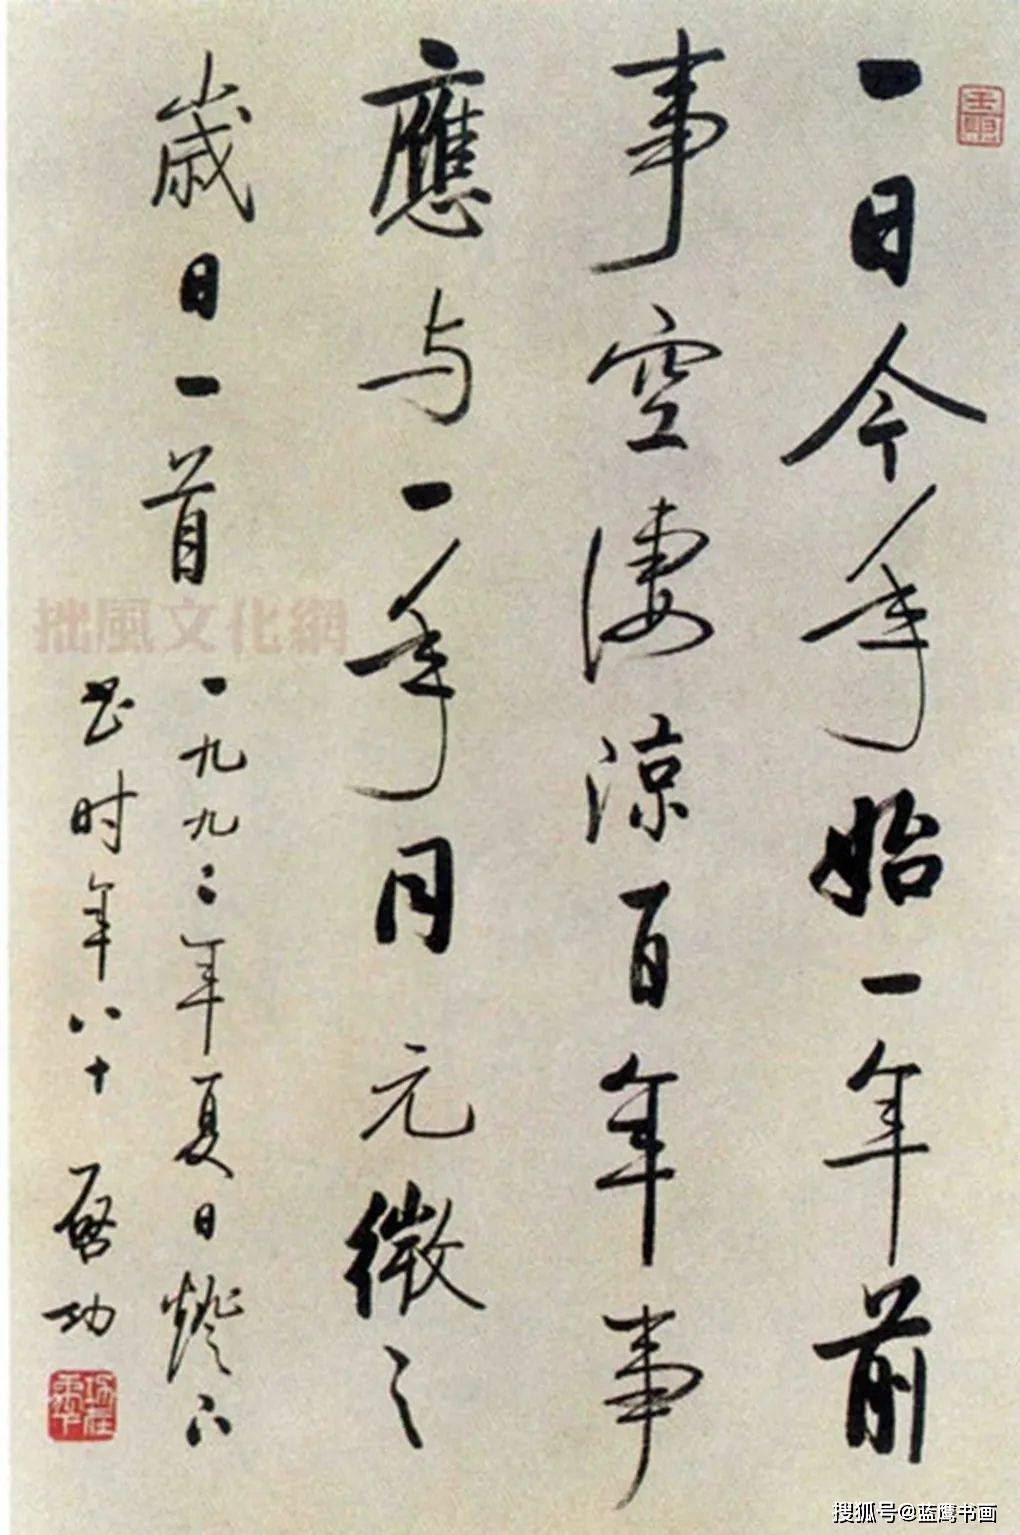 一日今年始一年前
事空淒涼百年事
應与一年同元微之
歲日一首
一九九二年夏日燈下
书时年八十 启功
拙風文化網
搜狐号@蓝鹰书画